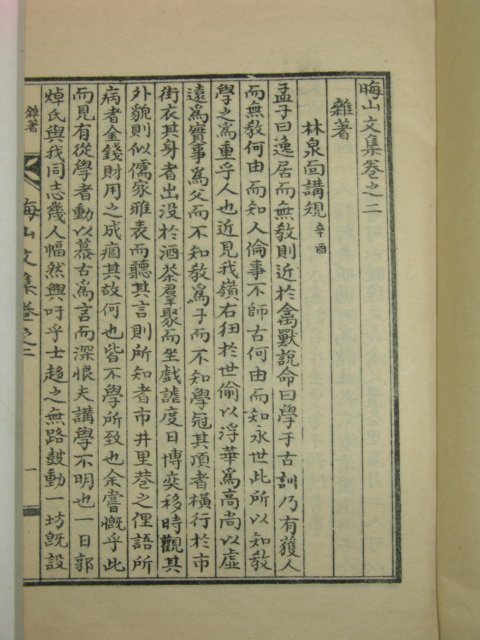 晦山文集卷之二
雜著
林泉面講規 辛酉
孟子曰逸居而無敎則近於禽獸說命曰學于古訓乃有獲人
而無敎何由而知人倫事不師古何由而知永世此所以知敎
學之爲重乎人也近見我嶺右狃於世偷以浮華爲高尚以虛
遠爲實事爲父而不知敎爲子而不知學冠其頂者橫行於市
街衣其身者出没於酒茶羣聚而坐戱謔度日博奕移時觀其
外貌則似儒家雅表而聽其言則所知者市井里巷之俚語所
病者金錢財用之成痼其故何也皆不學所致也余嘗慨乎此
而見有從學者動以慕古爲言而深恨夫講學不明也一日郭
焯氏與我同志幾人愊然興吁乎士趍之無路鼓動一坊旣設
雜著
晦山文集卷之二
一